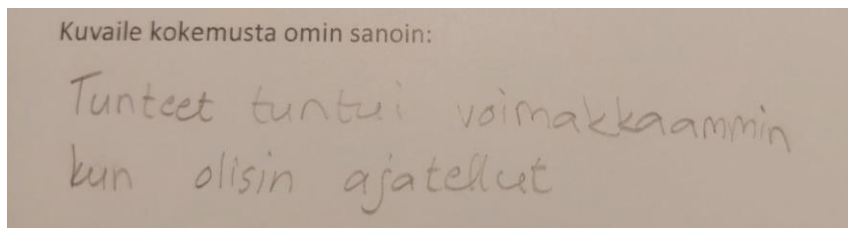 Kuvaile kokemusta omin sanoin:
Tunteet tuntui voimakkaammin
kun olisin ajatellut